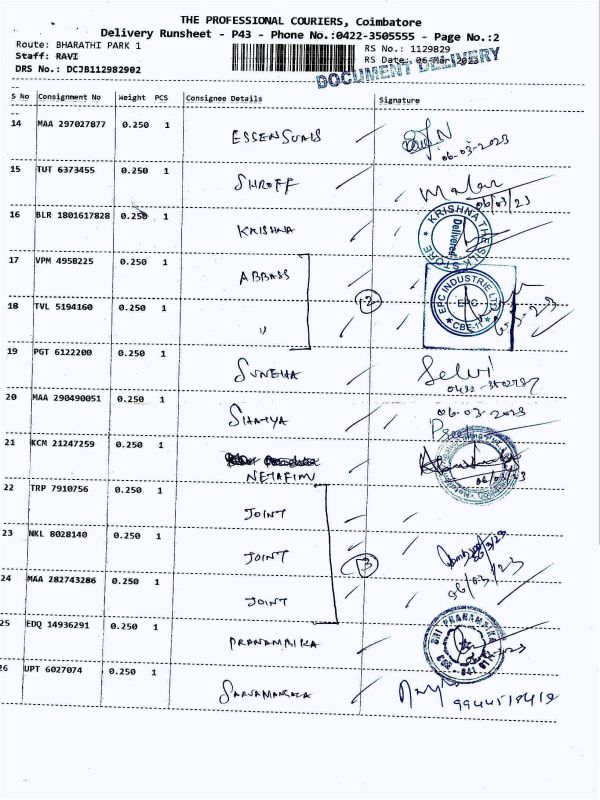 THE PROFESSIONAL COURIERS, Coimbatore
Delivery Runsheet - P43 - Phone No.:0422-3505555 - Page No.:2
Route: BHARATHI PARK 1 RS No.: 1129829
Staff: RAVI RS Date: 06-Mar-2023
DOCUMENT DELIVERY
DRS No.: DCJB112982902
S No Consignment No Weight PCS Consignee Details Signature
14 MAA 297027877 0.250 1 ESSENSUALS
06-03-2023
15 TUT 6373455 0.250 1 SHROFF
06/03/23
16 BLR 1801617828 0.250 1 KRISHNA
KRISHNA THE SILK STORE
Delivered
17 VPM 4958225 0.250 1 ABBASS
2
EPC INDUSTRIE LTD
EPC
CBE-11
18 TVL 5194160 0.250 1 "
19 PGT 6122200 0.250 1 SUNEHA Selvi
20 MAA 290490051 0.250 1 06-03-2023
21 KCM 21247259 0.250 1
NETAFIM 06/03/23
22 TRP 7910756 0.250 1 JOINT
23 NKL 8028140 0.250 1 JOINT
3
06/03/23
24 MAA 282743286 0.250 1 JOINT
25 EDQ 14936291 0.250 1 PRANAMBIKA
26 UPT 6027074 0.250 1 SARVAMANGALA